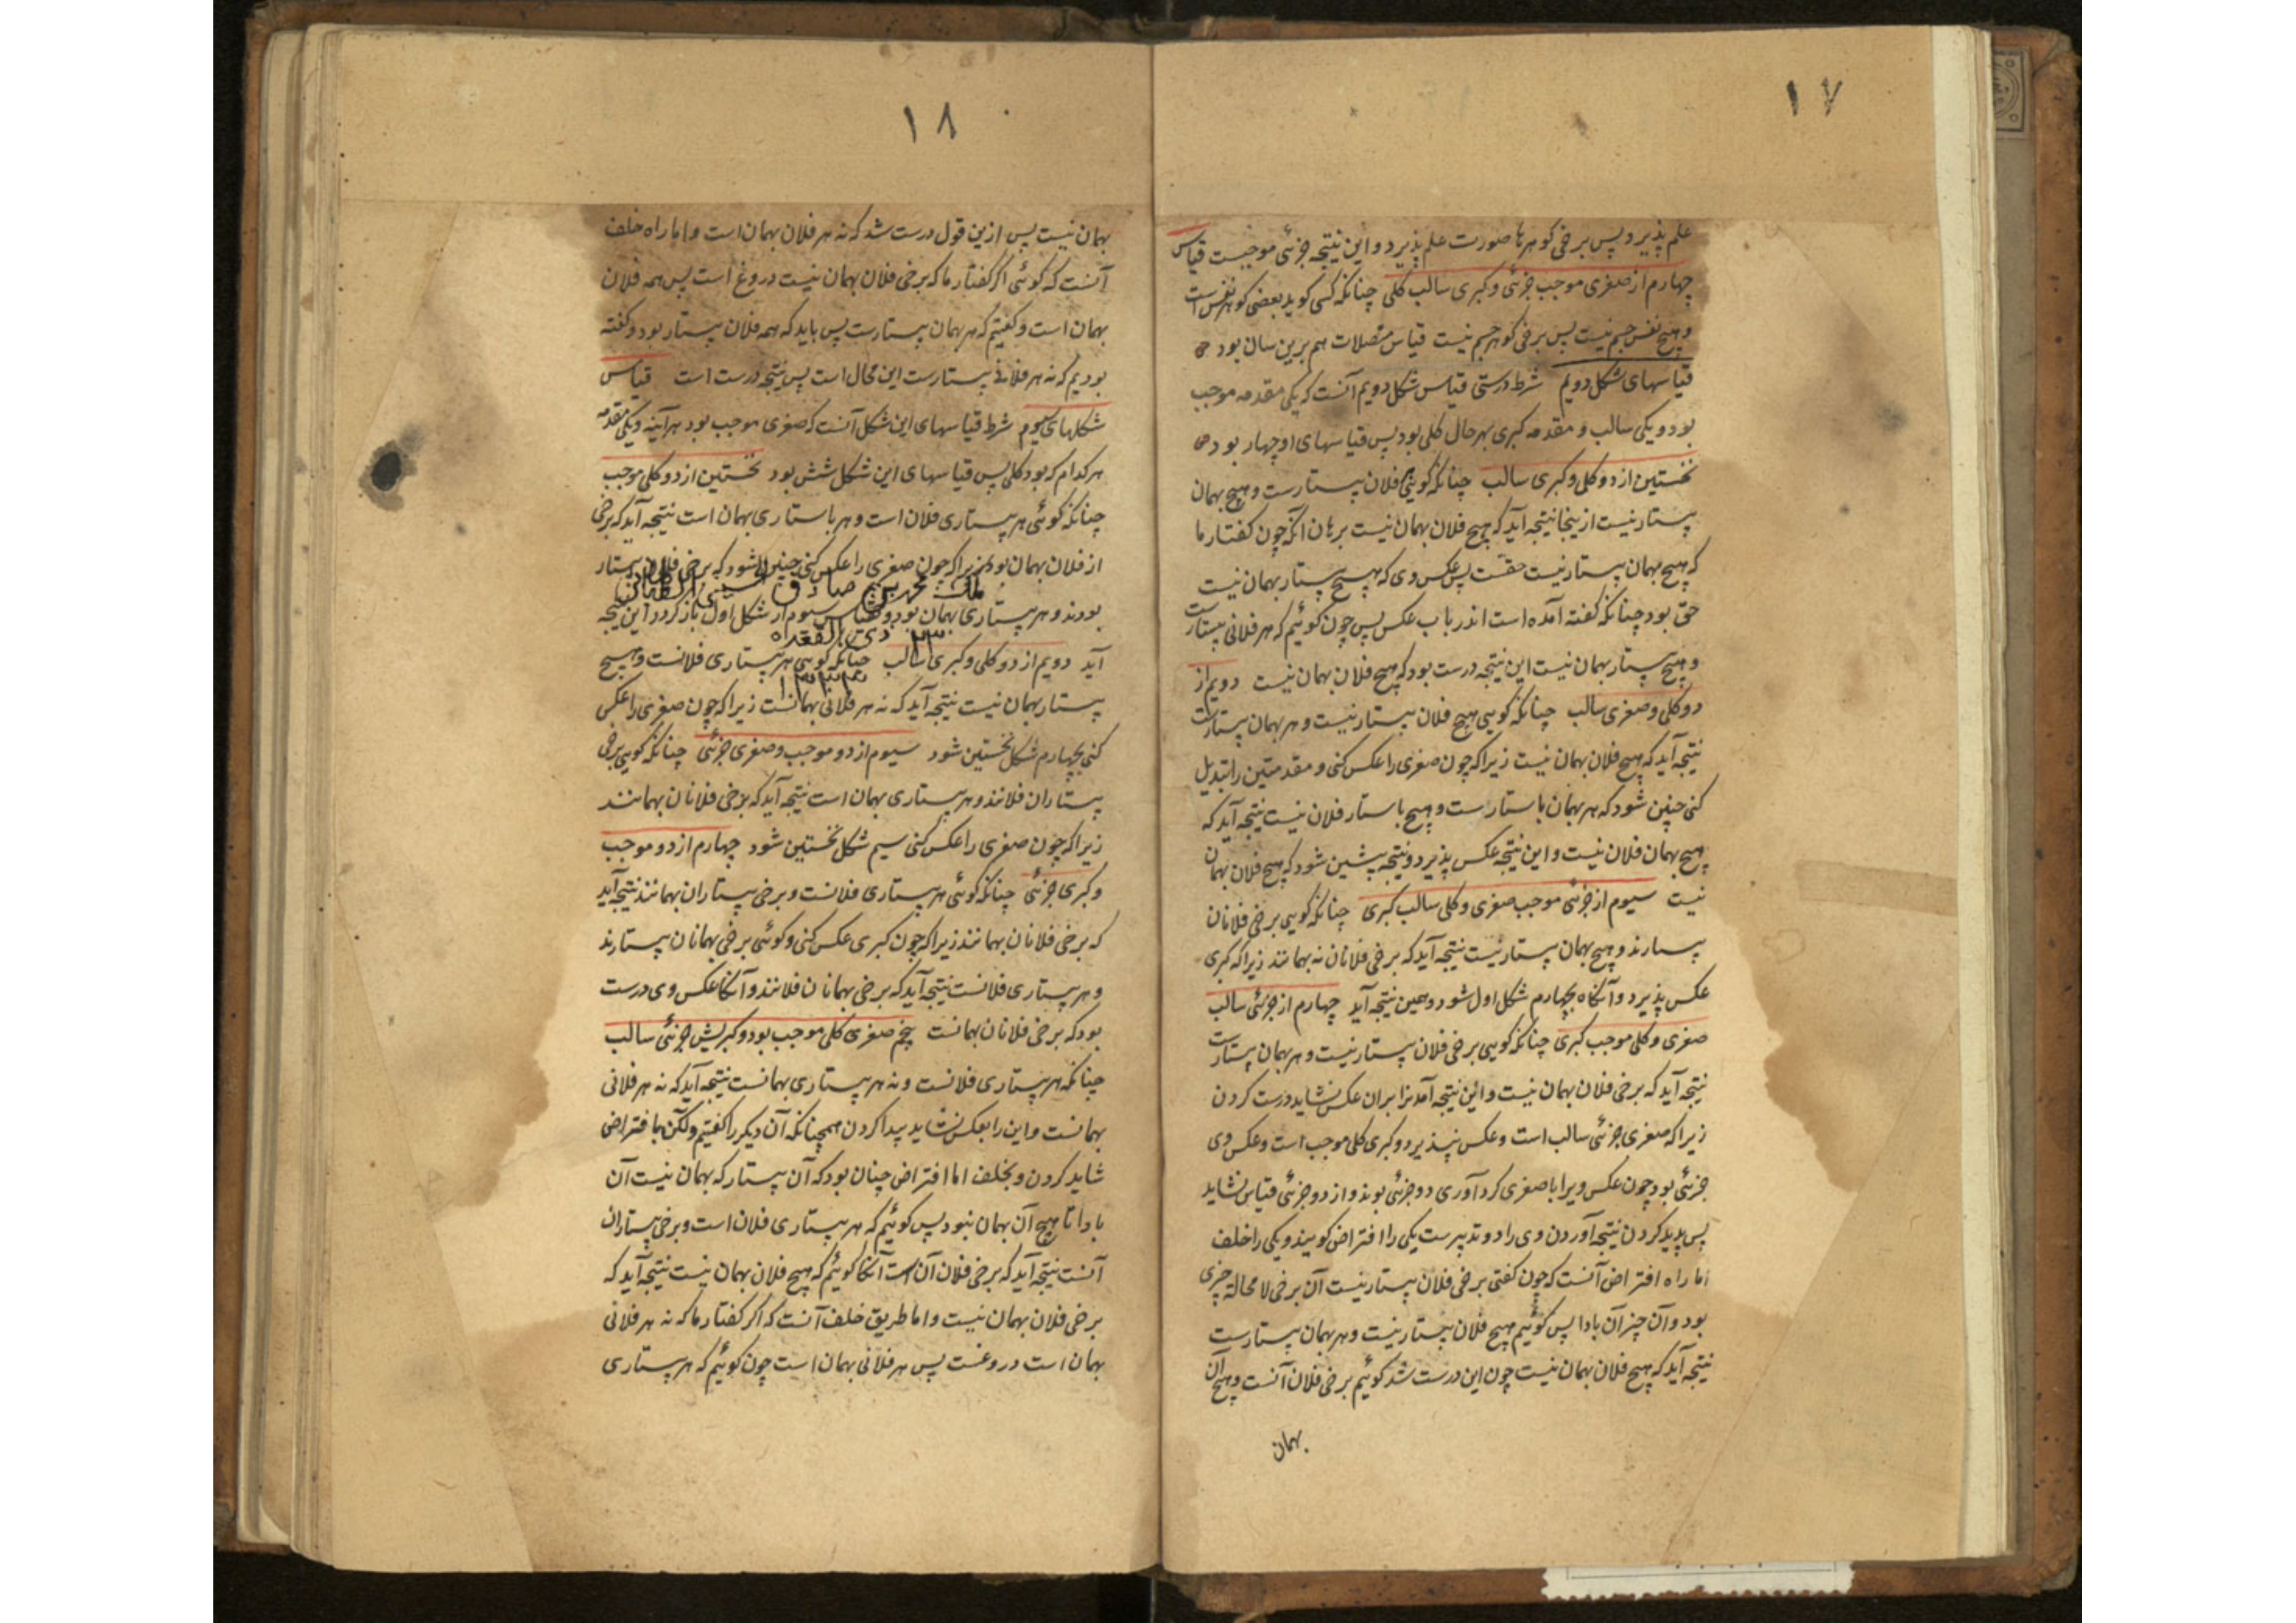 ١٧
علم پذیرد پس برخی گوهرها صورت علم پذیرد و این نتیجه جزئی موجبست قیاس
چهارم از صغری موجب جزئی و کبری سالب کلی چنانکه کسی گوید بعضی گوهر نفس است
و هیچ نفس جسم نیست پس برخی گوهر جسم نیست قیاس متصلات هم برین سان بود
قیاسهای شکل دویم شرط درستی قیاس شکل دویم آنست که یکی مقدمه موجب
بود و یکی سالب و مقدمه کبری بهر حال کلی بود پس قیاسهای او چهار بود
نخستین از دو کلی و کبری سالب چنانکه گویی فلان پیستارست و هیچ بهمان
پیستار نیست ازینجا نتیجه آید که هیچ فلان بهمان نیست برهان آنکه چون گفتار ما
که هیچ بهمان پیستار نیست حقست پس عکس وی که هیچ پیستار بهمان نیست
حق بود چنانکه گفته آمده است اندر باب عکس پس چون گوئیم که هر فلانی پیستارست
و هیچ پیستار بهمان نیست این نتیجه درست بود که هیچ فلان بهمان نیست دویم از
دو کلی و صغری سالب چنانکه گویی هیچ فلان پیستار نیست و هر بهمان پیستارست
نتیجه آید که هیچ فلان بهمان نیست زیرا که چون صغری را عکس کنی و مقدمتین را تبدیل
کنی چنین شود که هر بهمان باستارست و هیچ باستار فلان نیست نتیجه آید که
هیچ بهمان فلان نیست و این نتیجه عکس پذیرد و نتیجه پیشین شود که هیچ فلان بهمان
نیست سیوم از جزئی موجب صغری و کلی سالب کبری چنانکه گویی برخی فلانان
پیستارند و هیچ بهمان پیستار نیست نتیجه آید که برخی فلانان نه بهمانند زیرا که کبری
عکس پذیرد و آنگاه بچهارم شکل اول شود و همین نتیجه آید چهارم از جزئی سالب
صغری و کلی موجب کبری چنانکه گویی برخی فلان پیستار نیست و هر بهمان پیستارست
نتیجه آید که برخی فلان بهمان نیست و این نتیجه آمدنرا بران عکس نشاید درست کردن
زیرا که صغری جزئی سالب است و عکس نپذیرد و کبری کلی موجب است و عکس وی
جزئی بود چون عکس ویرا با صغری گرد آوری دو جزئی بوند و از دو جزئی قیاس نشاید
پس پدید کردن نتیجه آوردن وی را دو تدبیرست یکی را افتراض گویند و یکی را خلف
اما راه افتراض آنست که چون گفتی برخی فلان پیستار نیست آن برخی لامحالة چیزی
بود و آن چیز آن بادا پس گوئیم هیچ فلان پیستار نیست و هر بهمان پیستارست
نتیجه آید که هیچ فلان بهمان نیست چون این درست شد گوئیم برخی فلان آنست و هیچ آن
بهمان
١٨
بهمان نیست پس ازین قول درست شد که نه هر فلان بهمان است و اما راه خلف
آنست که گوئی اگر گفتار ما که برخی فلان بهمان نیست دروغ است پس همه فلان
بهمان است و گفتیم که هر بهمان پیستارست پس باید که همه فلان پیستار بود و گفته
بودیم که نه هر فلانی پیستارست این محال است پس نتیجه درست است قیاس
شکلهای سیوم شرط قیاسهای این شکل آنست که صغری موجب بود هرآینه و یکی مقدمه
هر کدام که بود کلی پس قیاسهای این شکل شش بود نخستین از دو کلی موجب
چنانکه گوئی هر پیستاری فلان است و هر باستاری بهمان است نتیجه آید که برخی
از فلان بهمان بود زیرا که چون صغری را عکس کنی چنین شود که برخی فلان پیستار
محمد بن صادق الحسینی
بودند و هر پیستاری بهمان بود و قیاس سیوم از شکل اول باز گردد این نتیجه
٢٣ ذی القعده
آید دویم از دو کلی و کبری سالب چنانکه گویی هر پیستاری فلانست و هیچ
پیستار بهمان نیست نتیجه آید که نه هر فلانی بهمانست زیرا که چون صغری را عکس
کنی بچهارم شکل نخستین شود سیوم از دو موجب و صغری جزئی چنانکه گویی برخی
پیستاران فلانند و هر پیستاری بهمان است نتیجه آید که برخی فلانان بهمانند
زیرا که چون صغری را عکس کنی سیم شکل نخستین شود چهارم از دو موجب
و کبری جزئی چنانکه گوئی هر پیستاری فلانست و برخی پیستاران بهمانند نتیجه آید
که برخی فلانان بهمانند زیرا که چون کبری عکس کنی و گوئی برخی بهمانان پیستارند
و هر پیستاری فلانست نتیجه آید که برخی بهمانان فلانند و آنگاه عکس وی درست
بود که برخی فلانان بهمانست پنجم صغری کلی موجب بود و کبریش جزئی سالب
چنانکه هر پیستاری فلانست و نه هر پیستاری بهمانست نتیجه آید که نه هر فلانی
بهمانست و این را بعکس نشاید پیدا کردن همچنانکه آن دیگر را گفتیم ولکن بافتراض
شاید کردن و بخلف اما افتراض چنان بود که آن پیستار که بهمان نیست آن
بادا تا هیچ آن بهمان نبود پس گوئیم که هر پیستاری فلان است و برخی پیستاران
آنست نتیجه آید که برخی فلان آن است آنگاه گوئیم که هیچ فلان بهمان نیست نتیجه آید که
برخی فلان بهمان نیست و اما طریق خلف آنست که اگر گفتار ما که نه هر فلانی
بهمان است دروغست پس هر فلانی بهمان است چون گوئیم که هر پستاری